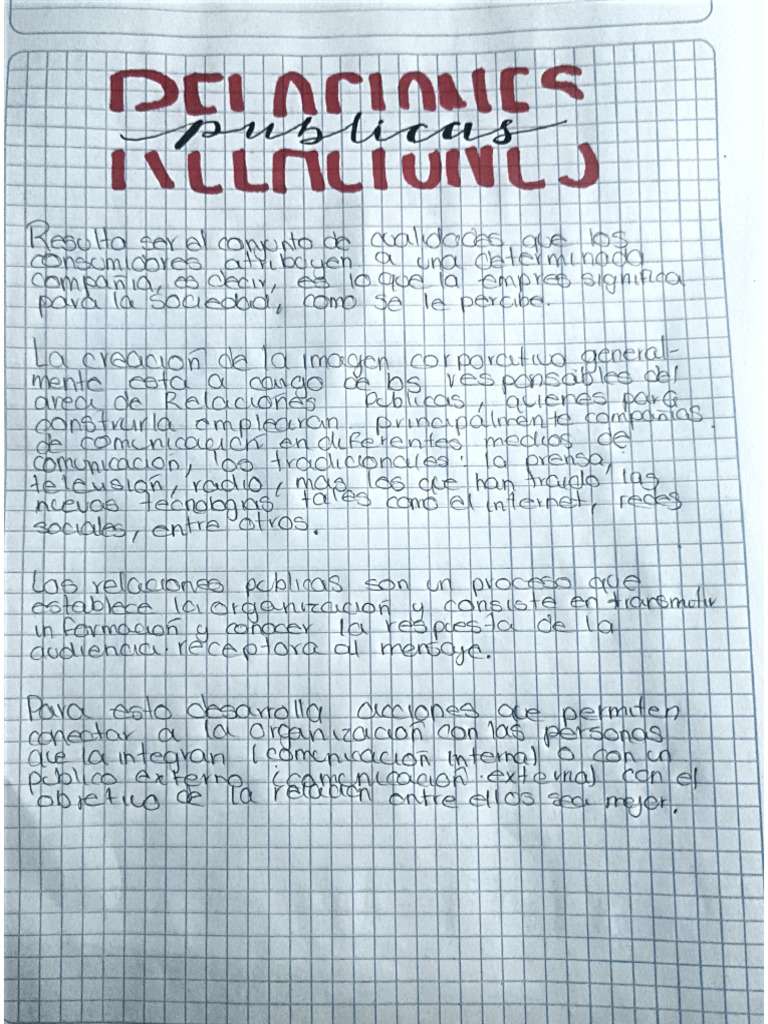 RELACIONES
publicas
RELACIONES
Resulta ser el conjunto de cualidades que los
consumidores atribuyen a una determinada
compañia, es decir, es lo que la empres significa
para la sociedad, como se le percibe.
La creación de la imagen corporativa general-
mente esta a cargo de los responsables del
area de Relaciones publicas, quienes para
construirla emplearan principalmente compañias
de comunicación en diferentes medios de
comunicación, los tradicionales: la prensa,
television, radio, mas los que han traido las
nuevas tecnologias tales como el internet, redes
sociales, entre otros.
Las relaciones publicas son un proceso que
establece la organización y consiste en transmitir
información y conocer la respuesta de la
audiencia receptora al mensaje.
Para esto desarrolla acciones que permiten
conectar a la organización con las personas
que la integran (comunicación interna) o con un
publico externo (comunicacion externa) con el
objetivo de la relación entre ellos sea mejor.